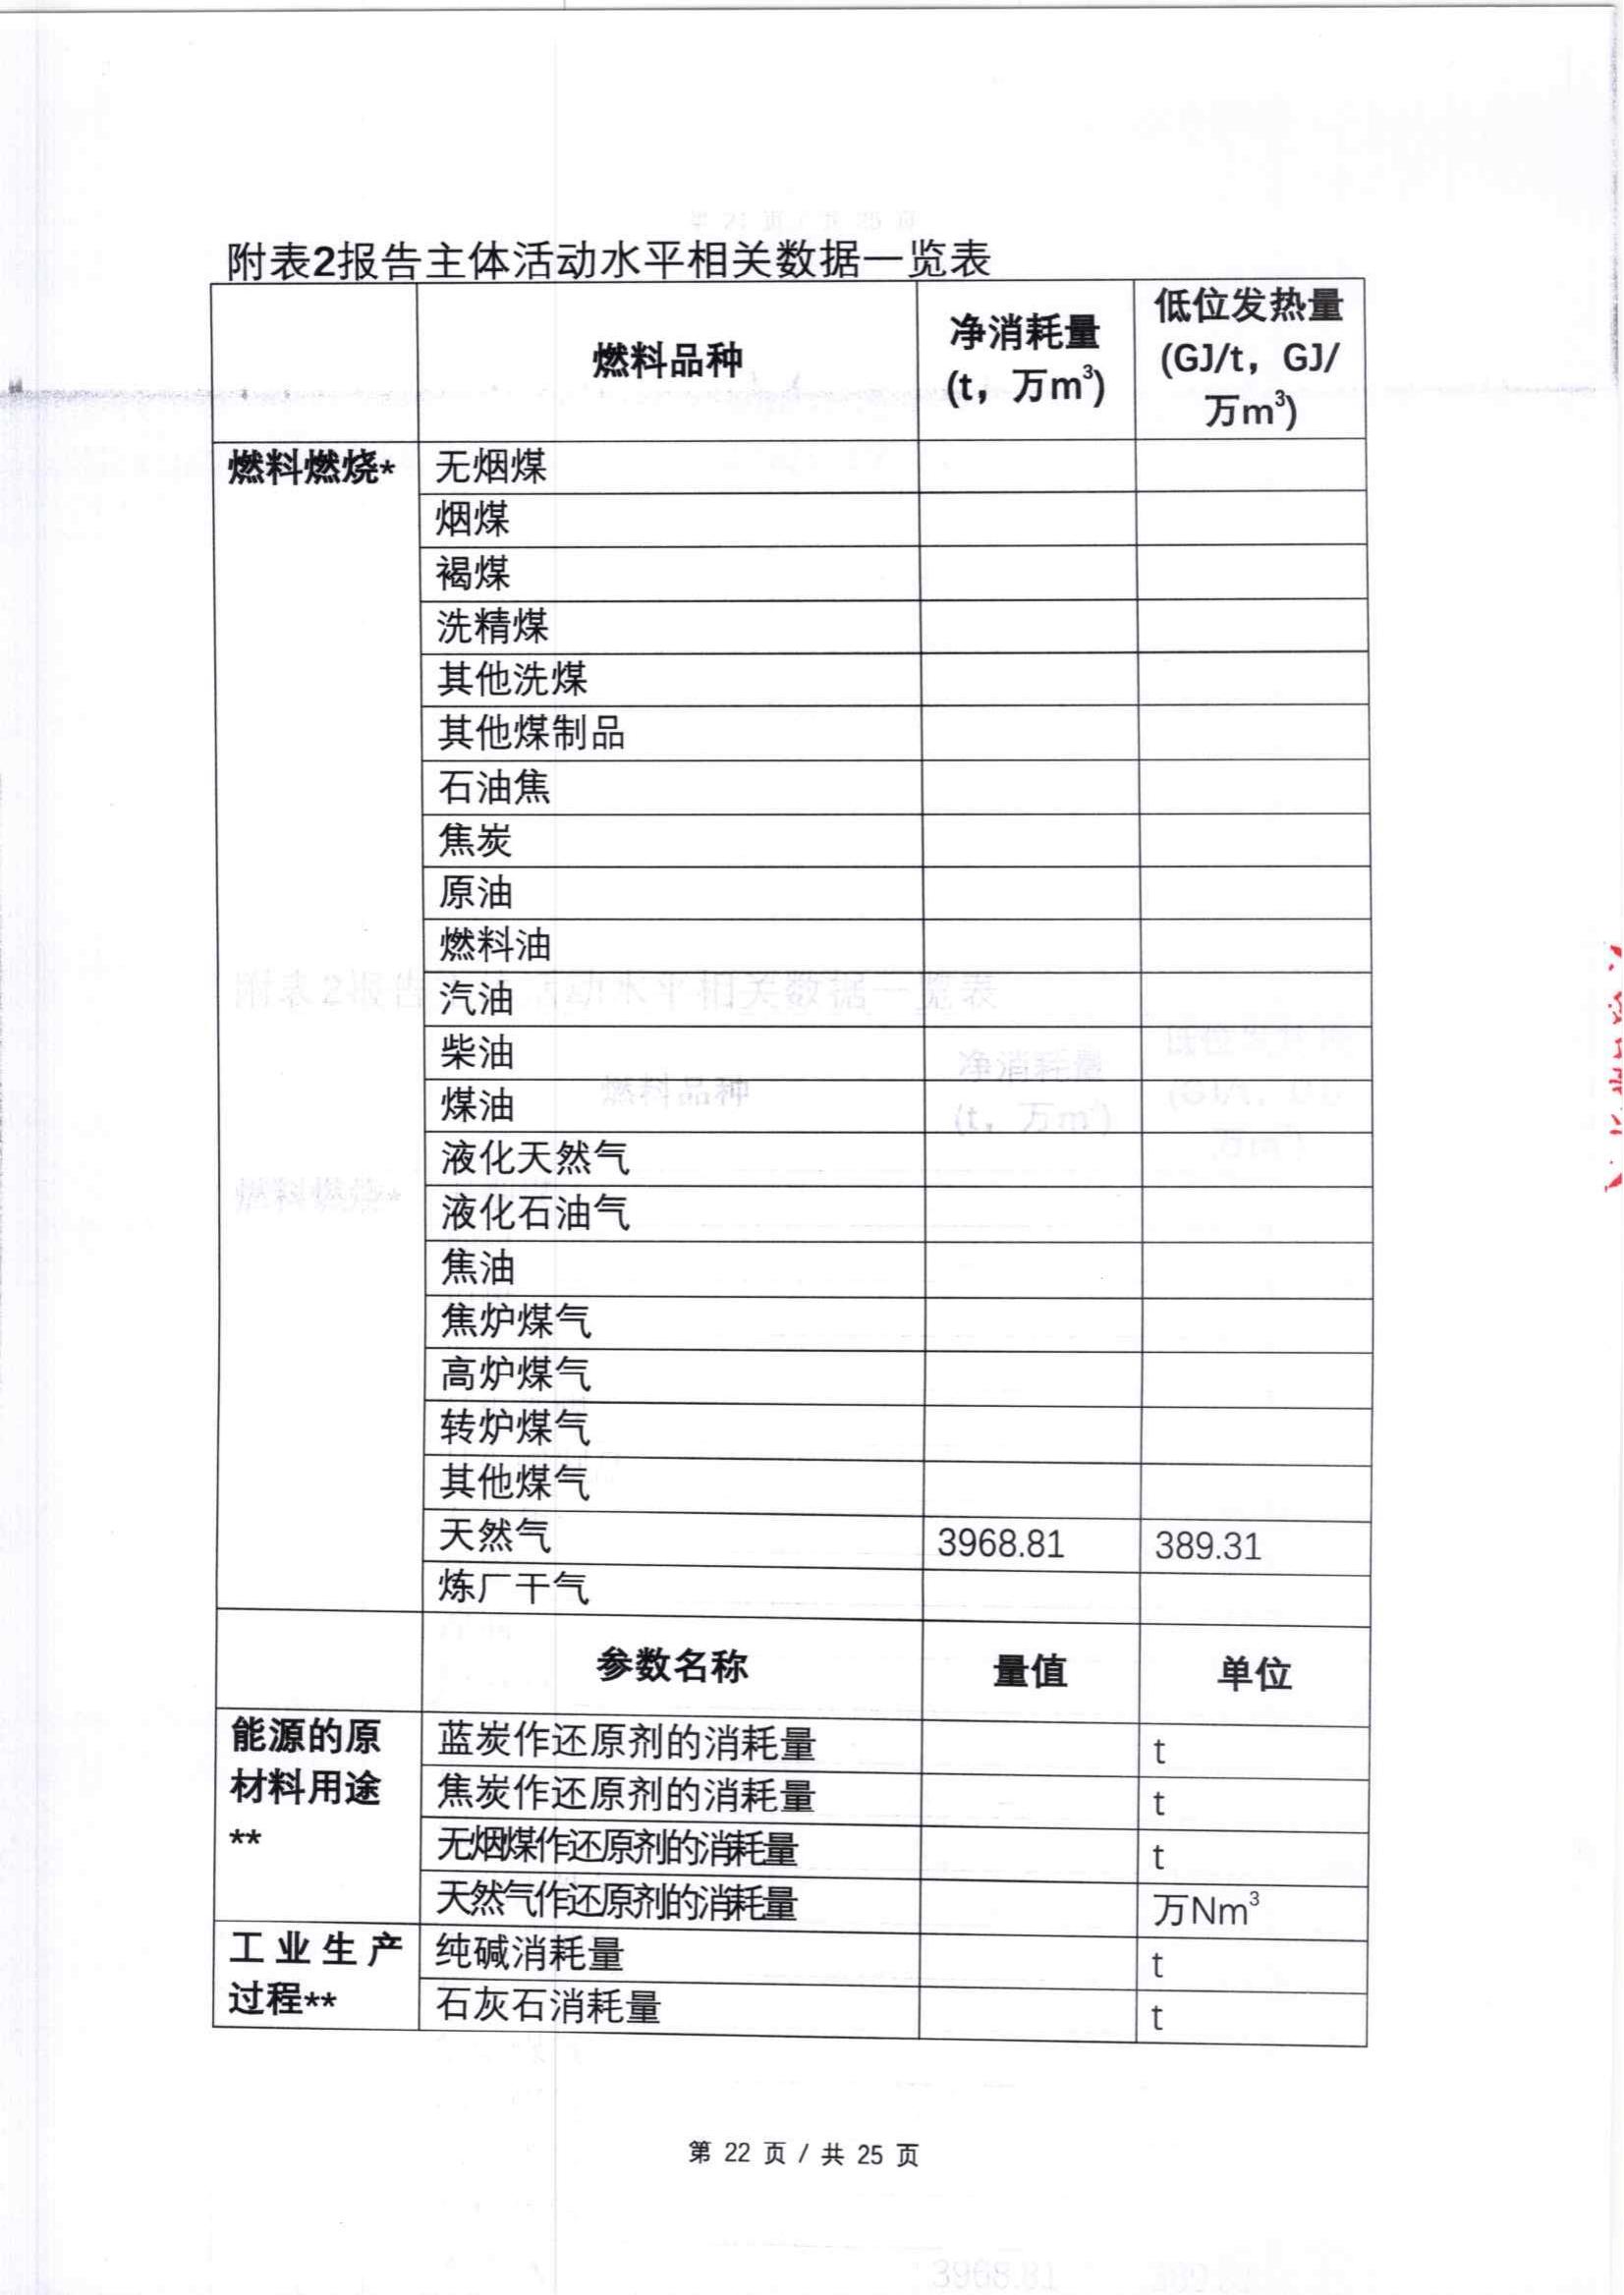 附表2报告主体活动水平相关数据一览表
燃料品种
净消耗量
(t，万m³)
低位发热量
(GJ/t，GJ/
万m³)
燃料燃烧*
无烟煤
烟煤
褐煤
洗精煤
其他洗煤
其他煤制品
石油焦
焦炭
原油
燃料油
汽油
柴油
煤油
液化天然气
液化石油气
焦油
焦炉煤气
高炉煤气
转炉煤气
其他煤气
天然气 3968.81 389.31
炼厂干气
参数名称 量值 单位
能源的原
材料用途
**
蓝炭作还原剂的消耗量 t
焦炭作还原剂的消耗量 t
无烟煤作还原剂的消耗量 t
天然气作还原剂的消耗量 万Nm³
工业生产
过程**
纯碱消耗量 t
石灰石消耗量 t
第 22 页 / 共 25 页